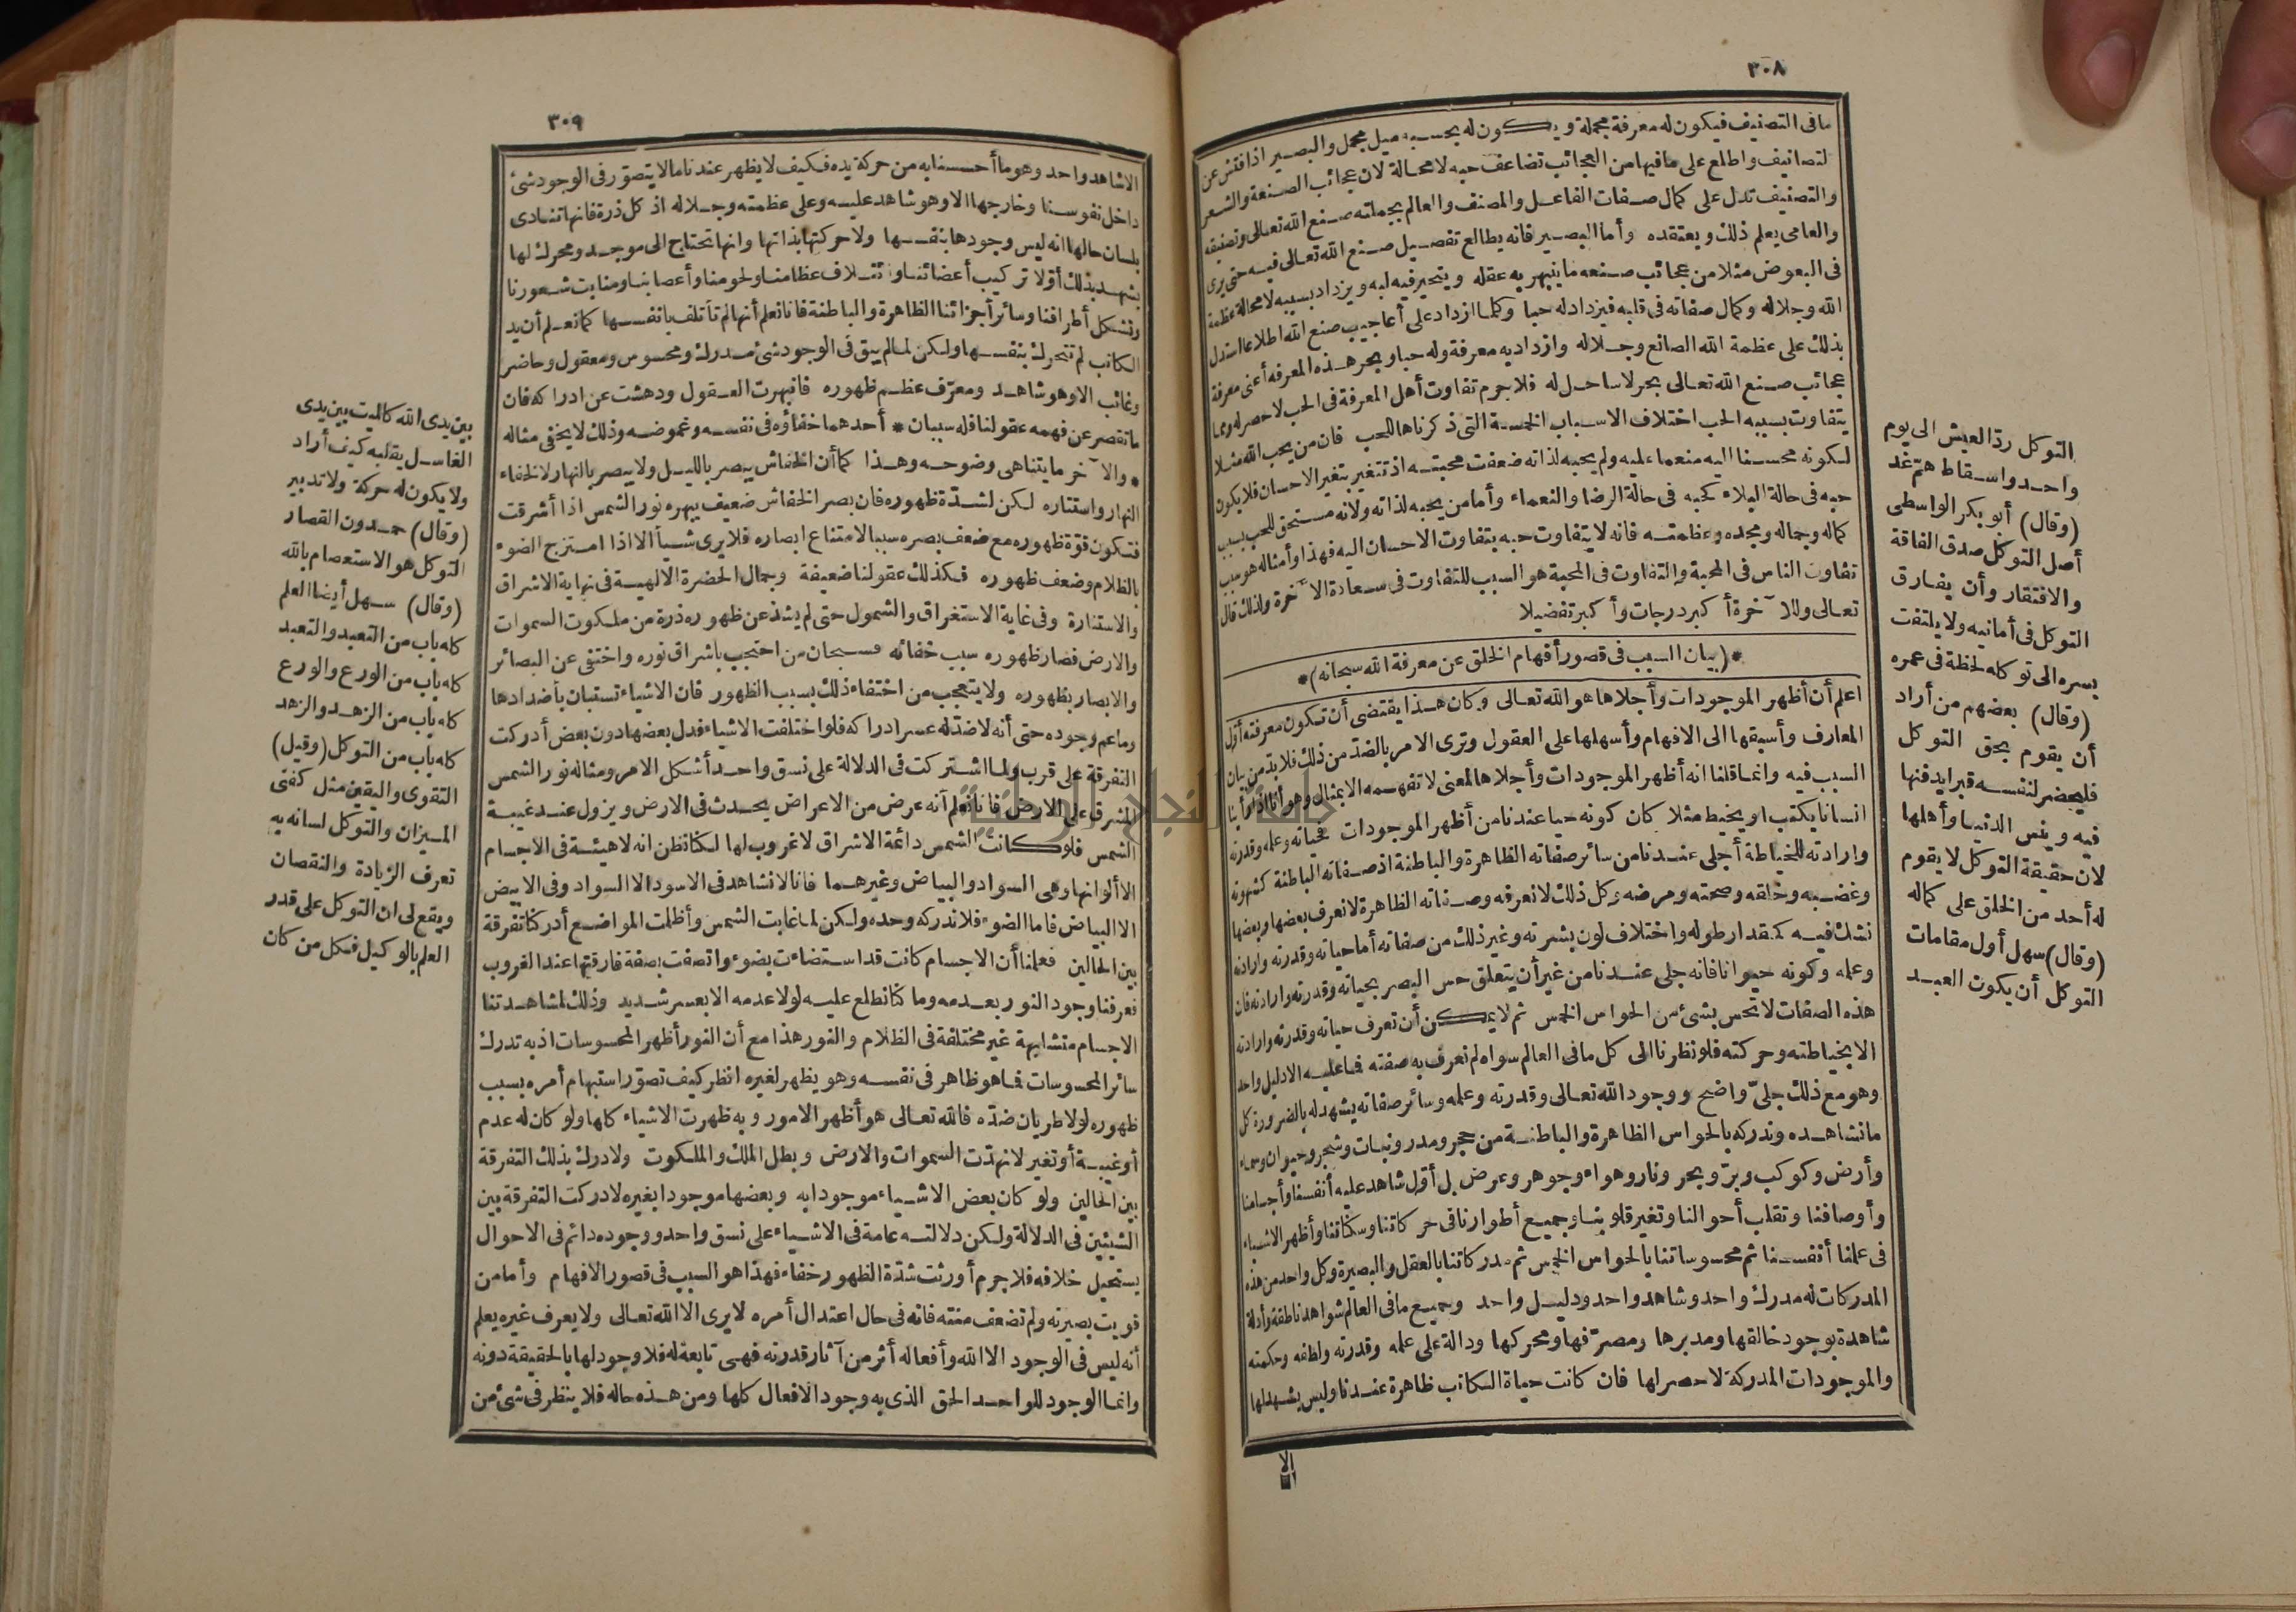 ٣٠٨
مافى التصنيف فيكون له معرفة مجملة ويكون له بحسبه ميل مجمل والبصير اذا فتش عن
التصانيف واطلع على مافيها من العجائب تضاعف حبه لامحالة لان عجائب الصنعة والشعر
والتصنيف تدل على كمال صفات الفاعل والمصنف والعالم بجملته صنع الله تعالى وتصنيفه
والعامى يعلم ذلك ويعتقده وأما البصير فانه يطالع تفصيل صنع الله تعالى فيه حتى يرى
فى البعوض مثلا من عجائب صنعه ما ينبهر به عقله ويتحير فيه لبه ويزداد بسببه لامحالة عظمة
الله وجلاله وكمال صفاته فى قلبه فيزداد له حبا وكلما ازداد على أعاجيب صنع الله اطلاعا استدل
بذلك على عظمة الله الصانع وجلاله وازداد به معرفة وله حبا وبحر هذه المعرفة أعنى معرفة
عجائب صنع الله تعالى بحر لاساحل له فلاجرم تفاوت أهل المعرفة فى الحب لاحصر له ومما
يتفاوت بسببه الحب اختلاف الاسباب الخمسة التى ذكرناها للحب فان من يحب الله مثلا
لكونه محسنا اليه منعما عليه ولم يحبه لذاته ضعفت محبته اذ تتغير بتغير الاحسان فلا يكون
حبه فى حالة البلاء كحبه فى حالة الرضا والنعماء وأما من يحبه لذاته ولانه مستحق للحب بسبب
كماله وجماله ومجده وعظمته فانه لا يتفاوت حبه بتفاوت الاحسان اليه فهذا وأمثاله هو سبب
تفاوت الناس فى المحبة والتفاوت فى المحبة هو السبب للتفاوت فى سعادة الآخرة ولذلك قال
تعالى وللآخرة أكبر درجات وأكبر تفضيلا
*(بيان السبب فى قصور أفهام الخلق عن معرفة الله سبحانه)*
اعلم أن أظهر الموجودات وأجلاها هو الله تعالى وكان هذا يقتضى أن تكون معرفته أول
المعارف وأسبقها الى الافهام وأسهلها على العقول وترى الامر بالضد من ذلك فلا بد من بيان
السبب فيه وانما قلنا انه أظهر الموجودات وأجلاها لمعنى لا تفهمه الا بمثال وهو أنا اذا رأينا
انسانا يكتب او يخيط مثلا كان كونه حيا عندنا من أظهر الموجودات فحياته وعلمه وقدرته
وارادته للخياطة أجلى عندنا من سائر صفاته الظاهرة والباطنة اذ صفاته الباطنة كشهوته
وغضبه وخلقه وصحته ومرضه وكل ذلك لا نعرفه وصفاته الظاهرة لا نعرف بعضها وبعضها
نشك فيه كمقدار طوله واختلاف لون بشرته وغير ذلك من صفاته أما حياته وقدرته وارادته
وعلمه وكونه حيوانا فانه جلى عندنا من غير أن يتعلق حس البصر بحياته وقدرته وارادته فان
هذه الصفات لا تحس بشئ من الحواس الخمس ثم لا يمكن أن تعرف حياته وقدرته وارادته
الا بخياطته وحركته فلو نظرنا الى كل مافى العالم سواه لم نعرف به صفته فما عليه الا دليل واحد
وهو مع ذلك جلى واضح ووجود الله تعالى وقدرته وعلمه وسائر صفاته يشهد له بالضرورة كل
ما نشاهده وندركه بالحواس الظاهرة والباطنة من حجر ومدر ونبات وشجر وحيوان وسماء
وأرض وكوكب وبر وبحر ونار وهواء وجوهر وعرض بل أول شاهد عليه أنفسنا وأجسامنا
وأوصافنا وتقلب أحوالنا وتغير قلوبنا وجميع أطوارنا فى حركاتنا وسكناتنا وأظهر الاشياء
فى علمنا أنفسنا ثم محسوساتنا بالحواس الخمس ثم مدركاتنا بالعقل والبصيرة وكل واحد من هذه
المدركات له مدرك واحد وشاهد واحد ودليل واحد وجميع مافى العالم شواهد ناطقة وأدلة
شاهدة بوجود خالقها ومدبرها ومصرفها ومحركها ودالة على علمه وقدرته ولطفه وحكمته
والموجودات المدركة لاحصر لها فان كانت حياة الكاتب ظاهرة عندنا وليس يشهد لها
الا
التوكل رد العيش الى يوم
واحد واسقاط هم غد
(وقال) أبو بكر الواسطى
أصل التوكل صدق الفاقة
والافتقار وأن يفارق
التوكل فى أمانيه ولا يلتفت
بسره الى توكله لحظة فى عمره
(وقال) بعضهم من أراد
أن يقوم بحق التوكل
فليحضر لنفسه قبرا يدفنها
فيه وينس الدنيا وأهلها
لان حقيقة التوكل لا يقوم
له أحد من الخلق على كماله
(وقال) سهل أول مقامات
التوكل أن يكون العبد
٣٠٩
الاشاهد واحد وهو ما أحسسنا به من حركة يده فكيف لا يظهر عندنا مالا يتصور فى الوجود شئ
داخل نفوسنا وخارجها الا وهو شاهد عليه وعلى عظمته وجلاله اذ كل ذرة فانها تنادى
بلسان حالها انه ليس وجودها بنفسها ولا حركتها بذاتها وانها تحتاج الى موجد ومحرك لها
يشهد بذلك أولا تركيب أعضائنا وائتلاف عظامنا ولحومنا وأعصابنا ومنابت شعورنا
وتشكل أطرافنا وسائر أجزائنا الظاهرة والباطنة فانا نعلم أنها لم تأتلف بانفسها كما نعلم أن يد
الكاتب لم تتحرك بنفسها ولكن لما لم يبق فى الوجود شئ مدرك ومحسوس ومعقول وحاضر
وغائب الا وهو شاهد ومعرف عظم ظهوره فانبهرت العقول ودهشت عن ادراكه فان
ما تقصر عن فهمه عقولنا فله سببان * أحدهما خفاؤه فى نفسه وغموضه وذلك لا يخفى مثاله
* والآخر ما يتناهى وضوحه وهذا كما أن الخفاش يبصر بالليل ولا يبصر بالنهار لا لخفاء
النهار واستتاره لكن لشدة ظهوره فان بصر الخفاش ضعيف يبهره نور الشمس اذا أشرقت
فتكون قوة ظهوره مع ضعف بصره سببا لامتناع ابصاره فلا يرى شيأ الا اذا امتزج الضوء
بالظلام وضعف ظهوره فكذلك عقولنا ضعيفة وجمال الحضرة الالهية فى نهاية الاشراق
والاستنارة وفى غاية الاستغراق والشمول حتى لم يشذ عن ظهوره ذرة من ملكوت السموات
والارض فصار ظهوره سبب خفائه فسبحان من احتجب باشراق نوره واختفى عن البصائر
والابصار بظهوره ولا يتعجب من اختفاء ذلك بسبب الظهور فان الاشياء تستبان بأضدادها
وما عم وجوده حتى أنه لا ضد له عسر ادراكه فلو اختلفت الاشياء فدل بعضها دون بعض أدركت
التفرقة على قرب ولما اشتركت فى الدلالة على نسق واحد أشكل الامر ومثاله نور الشمس
المشرق على الارض فانا نعلم أنه عرض من الاعراض يحدث فى الارض ويزول عند غيبة
الشمس فلو كانت الشمس دائمة الاشراق لا غروب لها لكنا نظن انه لا هيئة فى الاجسام
الا ألوانها وهى السواد والبياض وغيرهما فانا لا نشاهد فى الاسود الا السواد وفى الابيض
الا البياض فاما الضوء فلا ندركه وحده ولكن لما غابت الشمس وأظلمت المواضع أدركنا تفرقة
بين الحالين فعلمنا أن الاجسام كانت قد استضاءت بضوء واتصفت بصفة فارقتها عند الغروب
فعرفنا وجود النور بعدمه وما كنا نطلع عليه لولا عدمه الا بعسر شديد وذلك لمشاهدتنا
الاجسام متشابهة غير مختلفة فى الظلام والنور هذا مع أن النور أظهر المحسوسات اذ به تدرك
سائر المحسوسات فما هو ظاهر فى نفسه وهو يظهر لغيره انظر كيف تصور استبهام أمره بسبب
ظهوره لولا طريان ضده فالله تعالى هو أظهر الامور وبه ظهرت الاشياء كلها ولو كان له عدم
أو غيبة أو تغير لانهدت السموات والارض وبطل الملك والملكوت ولادرك بذلك التفرقة
بين الحالين ولو كان بعض الاشياء موجودا به وبعضها موجودا بغيره لادركت التفرقة بين
الشيئين فى الدلالة ولكن دلالته عامة فى الاشياء على نسق واحد ووجوده دائم فى الاحوال
يستحيل خلافه فلاجرم أورثت شدة الظهور خفاء فهذا هو السبب فى قصور الافهام وأما من
قويت بصيرته ولم تضعف منته فانه فى حال اعتدال أمره لا يرى الا الله تعالى ولا يعرف غيره يعلم
أنه ليس فى الوجود الا الله وأفعاله أثر من آثار قدرته فهى تابعة له فلا وجود لها بالحقيقة دونه
وانما الوجود للواحد الحق الذى به وجود الافعال كلها ومن هذه حاله فلا ينظر فى شئ من
بين يدى الله كالميت بين يدى
الغاسل يقلبه كيف أراد
ولا يكون له حركة ولا تدبير
(وقال) حمدون القصار
التوكل هو الاستعصام بالله
(وقال) سهل أيضا العلم
كله باب من التعبد والتعبد
كله باب من الورع والورع
كله باب من الزهد والزهد
كله باب من التوكل (وقيل)
التقوى واليقين مثل كفتى
الميزان والتوكل لسانه به
تعرف الزيادة والنقصان
ويقع لى ان التوكل على قدر
العلم بالوكيل فكل من كان
جامعة النجاح الوطنية